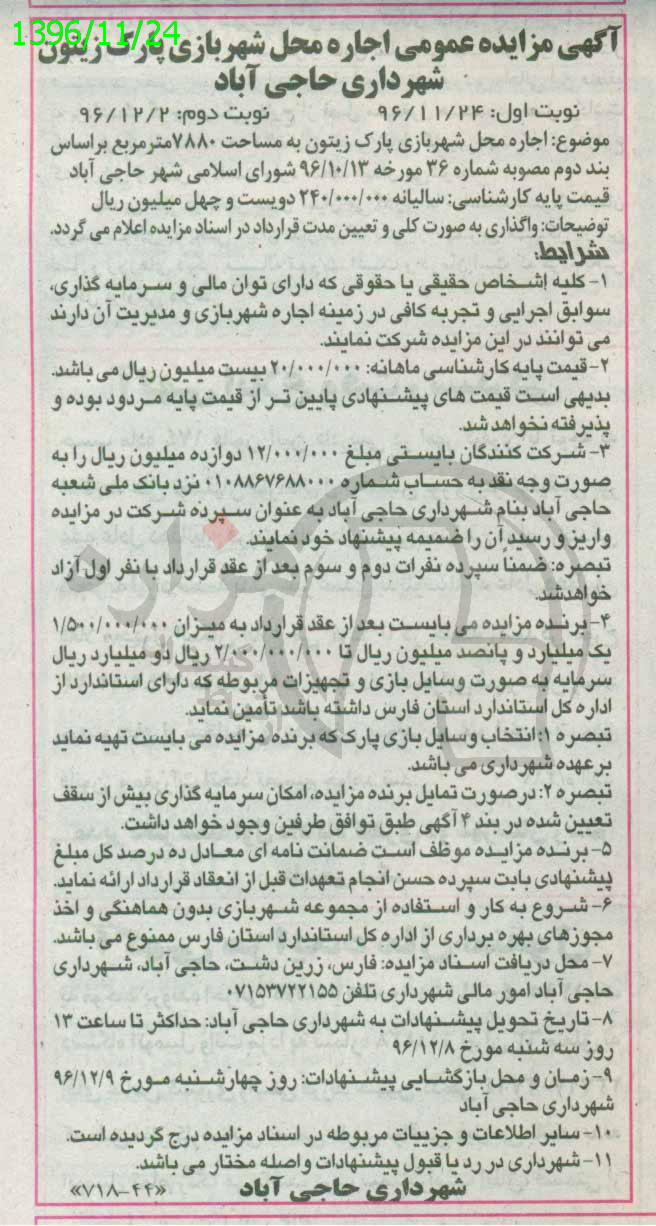 1396/11/24
آگهی مزایده عمومی اجاره محل شهربازی پارک زیتون
شهرداری حاجی آباد
نوبت اول: ۹۶/۱۱/۲۴ نوبت دوم: ۹۶/۱۲/۲
موضوع: اجاره محل شهربازی پارک زیتون به مساحت ۷۸۸۰مترمربع براساس
بند دوم مصوبه شماره ۳۶ مورخه ۹۶/۱۰/۱۳ شورای اسلامی شهر حاجی آباد
قیمت پایه کارشناسی: سالیانه ۲۴۰/۰۰۰/۰۰۰ دویست و چهل میلیون ریال
توضیحات: واگذاری به صورت کلی و تعیین مدت قرارداد در اسناد مزایده اعلام می گردد.
شرایط:
۱- کلیه اشخاص حقیقی یا حقوقی که دارای توان مالی و سرمایه گذاری،
سوابق اجرایی و تجربه کافی در زمینه اجاره شهربازی و مدیریت آن دارند
می توانند در این مزایده شرکت نمایند.
۲- قیمت پایه کارشناسی ماهانه: ۲۰/۰۰۰/۰۰۰ بیست میلیون ریال می باشد.
بدیهی است قیمت های پیشنهادی پایین تر از قیمت پایه مردود بوده و
پذیرفته نخواهد شد.
۳- شرکت کنندگان بایستی مبلغ ۱۲/۰۰۰/۰۰۰ دوازده میلیون ریال را به
صورت وجه نقد به حساب شماره ۰۱۰۸۸۶۷۶۸۸۰۰۰ نزد بانک ملی شعبه
حاجی آباد بنام شهرداری حاجی آباد به عنوان سپرده شرکت در مزایده
واریز و رسید آن را ضمیمه پیشنهاد خود نمایند.
تبصره: ضمناً سپرده نفرات دوم و سوم بعد از عقد قرارداد با نفر اول آزاد
خواهدشد.
۴- برنده مزایده می بایست بعد از عقد قرارداد به میزان ۱/۵۰۰/۰۰۰/۰۰۰
یک میلیارد و پانصد میلیون ریال تا ۲/۰۰۰/۰۰۰/۰۰۰ ریال دو میلیارد ریال
سرمایه به صورت وسایل بازی و تجهیزات مربوطه که دارای استاندارد از
اداره کل استاندارد استان فارس داشته باشد تأمین نماید.
تبصره ۱: انتخاب وسایل بازی پارک که برنده مزایده می بایست تهیه نماید
برعهده شهرداری می باشد.
تبصره ۲: درصورت تمایل برنده مزایده، امکان سرمایه گذاری بیش از سقف
تعیین شده در بند ۴ آگهی طبق توافق طرفین وجود خواهد داشت.
۵- برنده مزایده موظف است ضمانت نامه ای معادل ده درصد کل مبلغ
پیشنهادی بابت سپرده حسن انجام تعهدات قبل از انعقاد قرارداد ارائه نماید.
۶- شروع به کار و استفاده از مجموعه شهربازی بدون هماهنگی و اخذ
مجوزهای بهره برداری از اداره کل استاندارد استان فارس ممنوع می باشد.
۷- محل دریافت اسناد مزایده: فارس، زرین دشت، حاجی آباد، شهرداری
حاجی آباد امور مالی شهرداری تلفن ۰۷۱۵۳۷۲۲۱۵۵
۸- تاریخ تحویل پیشنهادات به شهرداری حاجی آباد: حداکثر تا ساعت ۱۳
روز سه شنبه مورخ ۹۶/۱۲/۸
۹- زمان و محل بازگشایی پیشنهادات: روز چهارشنبه مورخ ۹۶/۱۲/۹
شهرداری حاجی آباد
۱۰- سایر اطلاعات و جزییات مربوطه در اسناد مزایده درج گردیده است.
۱۱- شهرداری در رد یا قبول پیشنهادات واصله مختار می باشد.
شهرداری حاجی آباد «۷۱۸-۴۴»